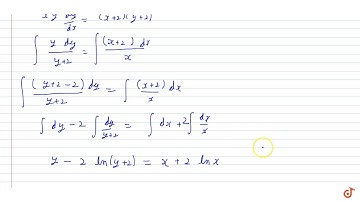 xy dy/dx = (x+2)(y+2)
∫ y dy/(y+2) = ∫ (x+2) dx/x
∫ (y+2-2) dy/(y+2) = ∫ (x+2)/x dx
∫ dy - 2 ∫ dy/(y+2) = ∫ dx + 2 ∫ dx/x
y - 2 ln(y+2) = x + 2 ln x